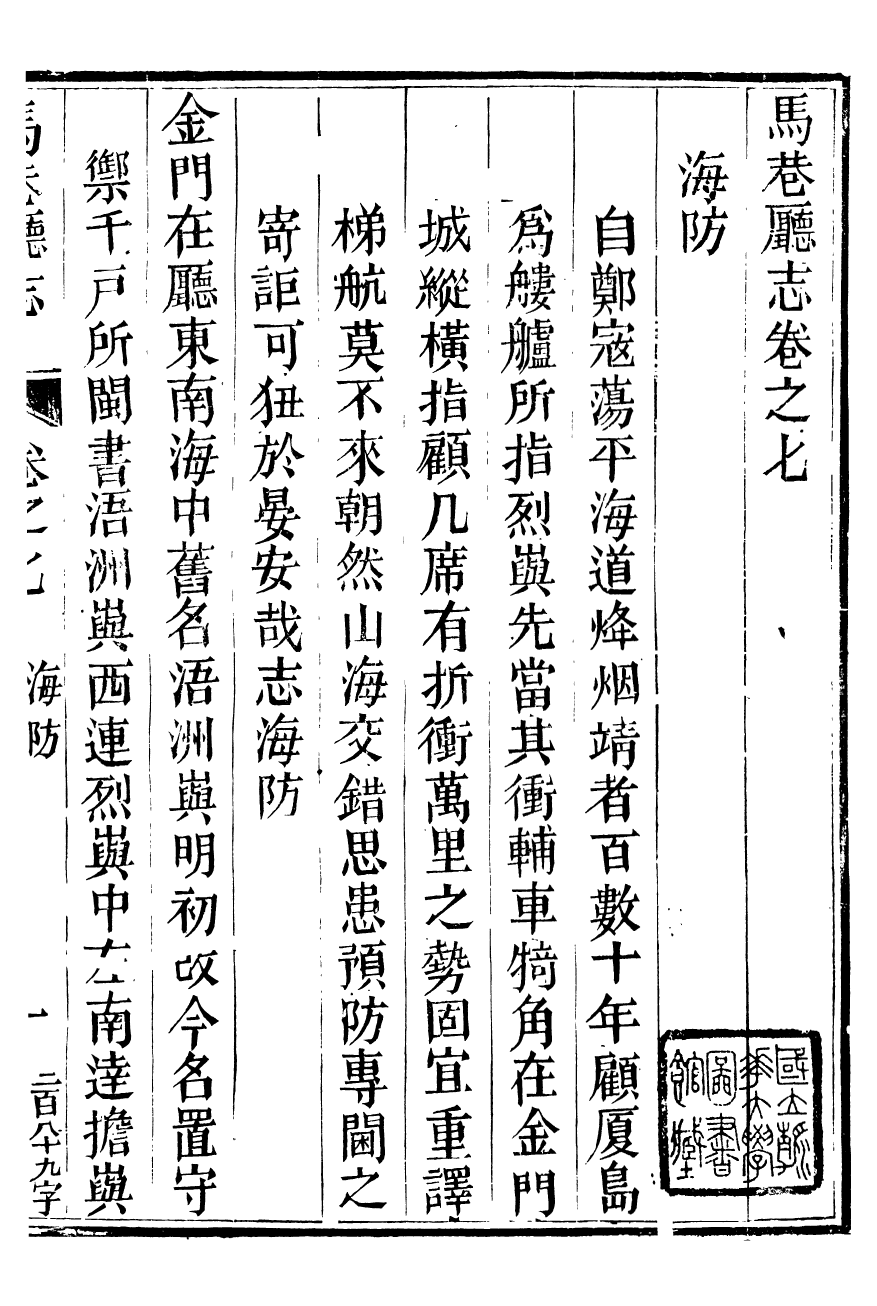 馬巷廳志卷之七
海防
自鄭寇蕩平海道烽烟靖者百數十年顧厦島
爲艛艫所指烈嶼先當其衝輔車犄角在金門
城縱橫指顧几席有折衝萬里之勢固宜重譯
梯航莫不來朝然山海交錯思患預防專閫之
寄詎可狃於晏安哉志海防
金門在廳東南海中舊名浯洲嶼明初改今名置守
禦千戶所閩書浯洲嶼西連烈嶼中左南達擔嶼
馬巷廳志 卷之七 海防 一 二百八十九字
國立
圖書
館